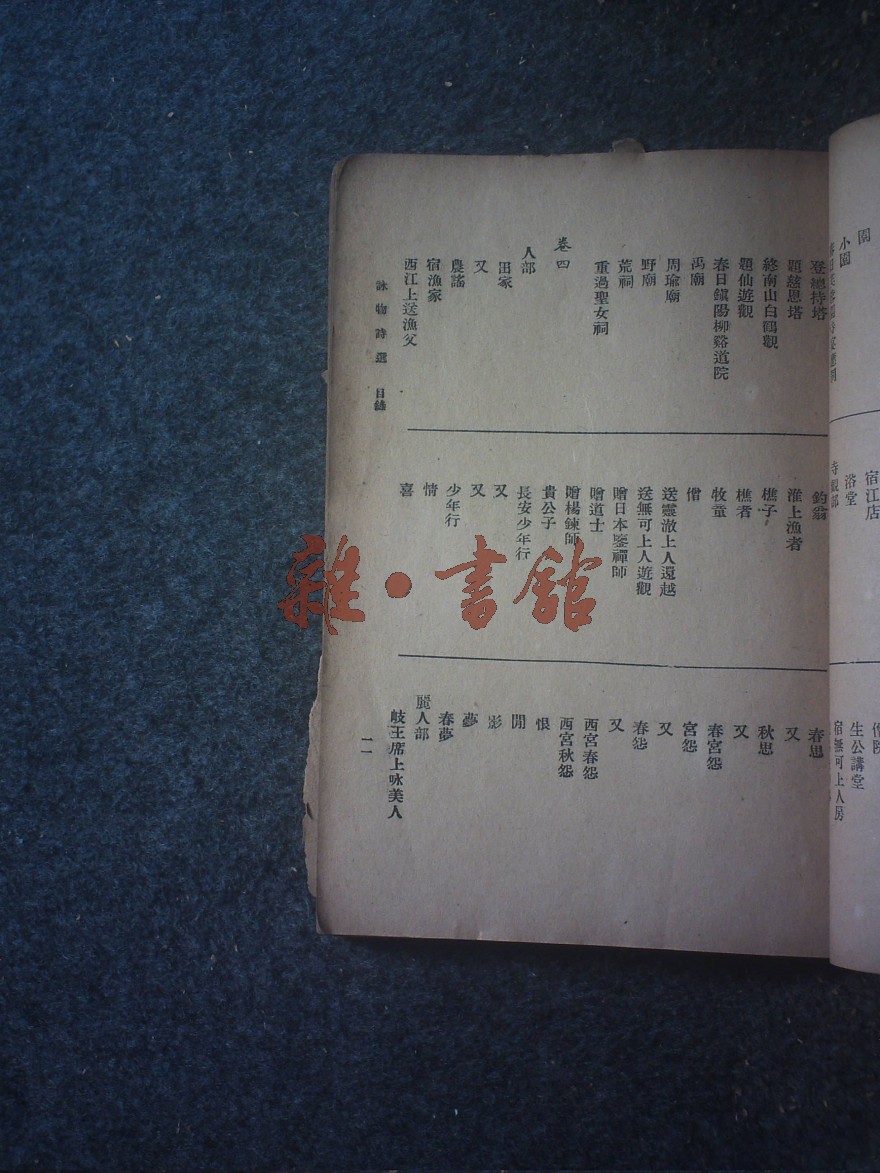 閣
小園
宿江店
浴堂
寺觀部
僧院
生公講堂
宿無可上人房
登總持塔
題慈恩塔
終南山白鶴觀
題仙遊觀
春日鎭陽柳谿道院
禹廟
周瑜廟
野廟
荒祠
重過聖女祠
卷四
人部
田家
又
農謠
宿漁家
西江上送漁父
釣翁
淮上漁者
樵子
樵者
牧童
僧
送靈澈上人還越
送無可上人遊觀
贈日本鑒禪師
贈道士
贈楊鍊師
貴公子
長安少年行
又
又
少年行
情
喜
春思
又
秋思
又
春宮怨
宮怨
又
春怨
又
西宮春怨
西宮秋怨
恨
閒
影
夢
春夢
麗人部
岐王席上咏美人
詠物詩選 目錄
一一
雜·書館